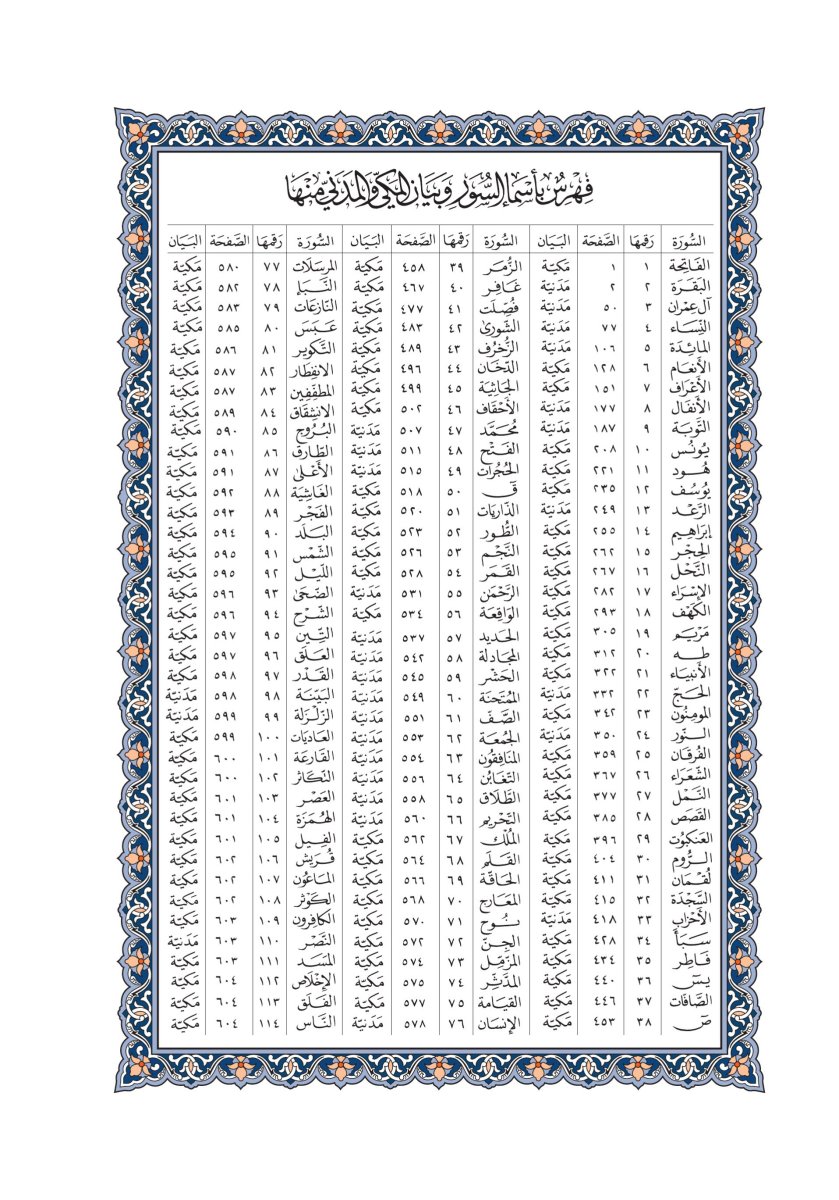 فِهْرِسٌ بِأَسْمَاءِ السُّوَرِ وَبَيَانِ المَكِّيِّ وَالمَدَنِيِّ مِنْهَا
السُّورَة رَقمهَا الصَّفحَة البَيَان السُّورَة رَقمهَا الصَّفحَة البَيَان السُّورَة رَقمهَا الصَّفحَة البَيَان
الفَاتِحَة ١ ١ مَكيّة الزُّمَر ٣٩ ٤٥٨ مَكيّة المُرسَلَات ٧٧ ٥٨٠ مَكيّة
البَقَرَة ٢ ٢ مَدَنيّة غَافِر ٤٠ ٤٦٧ مَكيّة النَّبَإ ٧٨ ٥٨٢ مَكيّة
آل عِمْرَان ٣ ٥٠ مَدَنيّة فُصِّلَت ٤١ ٤٧٧ مَكيّة النَّازِعَات ٧٩ ٥٨٣ مَكيّة
النِّسَاء ٤ ٧٧ مَدَنيّة الشُّورىٰ ٤٢ ٤٨٣ مَكيّة عَبَسَ ٨٠ ٥٨٥ مَكيّة
المَائِدَة ٥ ١٠٦ مَدَنيّة الزُّخْرُف ٤٣ ٤٨٩ مَكيّة التَّكوِير ٨١ ٥٨٦ مَكيّة
الأَنعَام ٦ ١٢٨ مَكيّة الدّخَان ٤٤ ٤٩٦ مَكيّة الانفِطَار ٨٢ ٥٨٧ مَكيّة
الأَعْرَاف ٧ ١٥١ مَكيّة الجَاثِيَة ٤٥ ٤٩٩ مَكيّة المطفّفِين ٨٣ ٥٨٧ مَكيّة
الأَنفَال ٨ ١٧٧ مَدَنيّة الأَحْقَاف ٤٦ ٥٠٢ مَكيّة الانشِقَاق ٨٤ ٥٨٩ مَكيّة
التَّوبَة ٩ ١٨٧ مَدَنيّة مُحَمَّد ٤٧ ٥٠٧ مَدَنيّة البُرُوج ٨٥ ٥٩٠ مَكيّة
يُونُس ١٠ ٢٠٨ مَكيّة الفَتْح ٤٨ ٥١١ مَدَنيّة الطَّارِق ٨٦ ٥٩١ مَكيّة
هُود ١١ ٢٢١ مَكيّة الحُجُرَات ٤٩ ٥١٥ مَدَنيّة الأَعْلىٰ ٨٧ ٥٩١ مَكيّة
يُوسُف ١٢ ٢٣٥ مَكيّة قٓ ٥٠ ٥١٨ مَكيّة الغَاشِيَة ٨٨ ٥٩٢ مَكيّة
الرَّعْد ١٣ ٢٤٩ مَدَنيّة الذَّارِيَات ٥١ ٥٢٠ مَكيّة الفَجْر ٨٩ ٥٩٣ مَكيّة
إبرَاهِيم ١٤ ٢٥٥ مَكيّة الطُّور ٥٢ ٥٢٣ مَكيّة البَلَد ٩٠ ٥٩٤ مَكيّة
الحِجْر ١٥ ٢٦٢ مَكيّة النَّجْم ٥٣ ٥٢٦ مَكيّة الشَّمْس ٩١ ٥٩٥ مَكيّة
النَّحْل ١٦ ٢٦٧ مَكيّة القَمَر ٥٤ ٥٢٨ مَكيّة اللَّيل ٩٢ ٥٩٥ مَكيّة
الإِسْرَاء ١٧ ٢٨٢ مَكيّة الرَّحْمٰن ٥٥ ٥٣١ مَدَنيّة الضّحَىٰ ٩٣ ٥٩٦ مَكيّة
الكَهْف ١٨ ٢٩٣ مَكيّة الوَاقِعَة ٥٦ ٥٣٤ مَكيّة الشَّرْح ٩٤ ٥٩٦ مَكيّة
مَرْيَم ١٩ ٣٠٥ مَكيّة الحَديد ٥٧ ٥٣٧ مَدَنيّة التِّين ٩٥ ٥٩٧ مَكيّة
طه ٢٠ ٣١٢ مَكيّة المجَادلة ٥٨ ٥٤٢ مَدَنيّة العَلَق ٩٦ ٥٩٧ مَكيّة
الأَنبيَاء ٢١ ٣٢٢ مَكيّة الحَشْر ٥٩ ٥٤٥ مَدَنيّة القَدْر ٩٧ ٥٩٨ مَكيّة
الحَجّ ٢٢ ٣٣٢ مَدَنيّة المُمْتَحَنَة ٦٠ ٥٤٩ مَدَنيّة البَيّنَة ٩٨ ٥٩٨ مَدَنيّة
المؤمنُون ٢٣ ٣٤٢ مَكيّة الصَّف ٦١ ٥٥١ مَدَنيّة الزّلْزَلة ٩٩ ٥٩٩ مَدَنيّة
النّور ٢٤ ٣٥٠ مَدَنيّة الجُمُعَة ٦٢ ٥٥٣ مَدَنيّة العَادِيَات ١٠٠ ٥٩٩ مَكيّة
الفُرقَان ٢٥ ٣٥٩ مَكيّة المنَافِقُون ٦٣ ٥٥٤ مَدَنيّة القَارعَة ١٠١ ٦٠٠ مَكيّة
الشُّعَرَاء ٢٦ ٣٦٧ مَكيّة التّغَابُن ٦٤ ٥٥٦ مَدَنيّة التّكَاثُر ١٠٢ ٦٠٠ مَكيّة
النَّمْل ٢٧ ٣٧٧ مَكيّة الطَّلَاق ٦٥ ٥٥٨ مَدَنيّة العَصْر ١٠٣ ٦٠١ مَكيّة
القَصَص ٢٨ ٣٨٥ مَكيّة التّحْرِيم ٦٦ ٥٦٠ مَدَنيّة الهُمَزَة ١٠٤ ٦٠١ مَكيّة
العَنكبُوت ٢٩ ٣٩٦ مَكيّة المُلْك ٦٧ ٥٦٢ مَكيّة الفِيل ١٠٥ ٦٠١ مَكيّة
الرُّوم ٣٠ ٤٠٤ مَكيّة القَلَم ٦٨ ٥٦٤ مَكيّة قُرَيش ١٠٦ ٦٠٢ مَكيّة
لُقْمَان ٣١ ٤١١ مَكيّة الحَاقَّة ٦٩ ٥٦٦ مَكيّة المَاعُون ١٠٧ ٦٠٢ مَكيّة
السَّجْدَة ٣٢ ٤١٥ مَكيّة المعَارج ٧٠ ٥٦٨ مَكيّة الكَوْثَر ١٠٨ ٦٠٢ مَكيّة
الأَحْزَاب ٣٣ ٤١٨ مَدَنيّة نُوح ٧١ ٥٧٠ مَكيّة الكَافِرُون ١٠٩ ٦٠٣ مَكيّة
سَبَأ ٣٤ ٤٢٨ مَكيّة الجِنّ ٧٢ ٥٧٢ مَكيّة النَّصْر ١١٠ ٦٠٣ مَدَنيّة
فَاطِر ٣٥ ٤٣٤ مَكيّة المزّمّل ٧٣ ٥٧٤ مَكيّة المَسَد ١١١ ٦٠٣ مَكيّة
يسٓ ٣٦ ٤٤٠ مَكيّة المدَّثِّر ٧٤ ٥٧٥ مَكيّة الإِخْلَاص ١١٢ ٦٠٤ مَكيّة
الصَّافات ٣٧ ٤٤٦ مَكيّة القيَامة ٧٥ ٥٧٧ مَكيّة الفَلَق ١١٣ ٦٠٤ مَكيّة
صٓ ٣٨ ٤٥٣ مَكيّة الإنسَان ٧٦ ٥٧٨ مَدَنيّة النَّاس ١١٤ ٦٠٤ مَكيّة